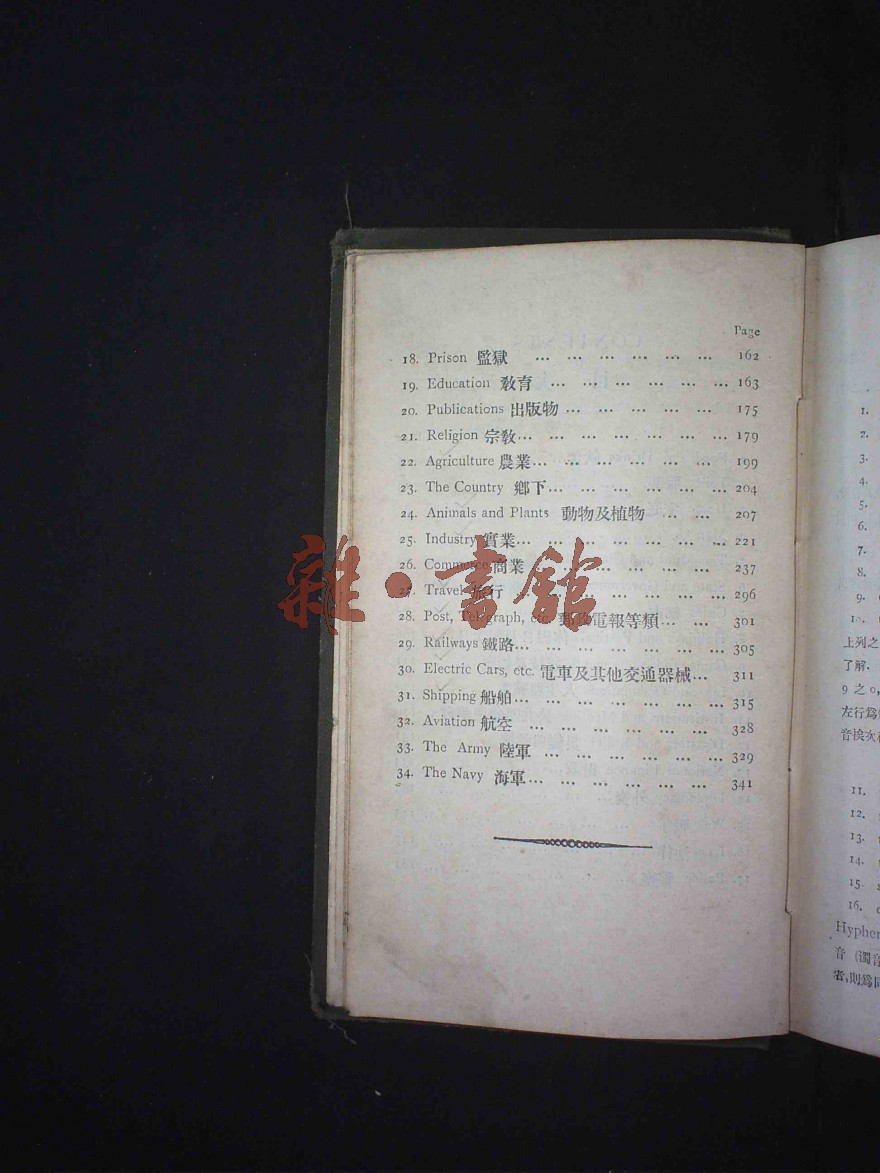 Page
18. Prison 監獄 ... ... ... ... ... ... 162
19. Education 教育 ... ... ... ... ... ... 163
20. Publications 出版物 ... ... ... ... ... 175
21. Religion 宗教... ... ... ... ... ... ... 179
22. Agriculture 農業... ... ... ... ... ... 199
23. The Country 鄉下... ... ... ... ... ... 204
24. Animals and Plants 動物及植物 ... ... 207
25. Industry 實業... ... ... ... ... ... ... 221
26. Commerce 商業 ... ... ... ... ... ... 237
27. Travel 旅行 ... ... ... ... ... ... ... 296
28. Post, Telegraph, etc. 郵政電報等類... ... 301
29. Railways 鐵路... ... ... ... ... ... ... 305
30. Electric Cars, etc. 電車及其他交通器械... 311
31. Shipping 船舶... ... ... ... ... ... ... 315
32. Aviation 航空 ... ... ... ... ... ... 328
33. The Army 陸軍 ... ... ... ... ... ... 329
34. The Navy 海軍... ... ... ... ... ... 341
雜·書館
1.
2.
3.
4.
5.
6.
7.
8.
9.
10.
上列之
了解.
9 之 0,
左行爲
音挨次
11.
12.
13.
14.
15.
16.
Hyphen
音 (濁音
者,則爲同